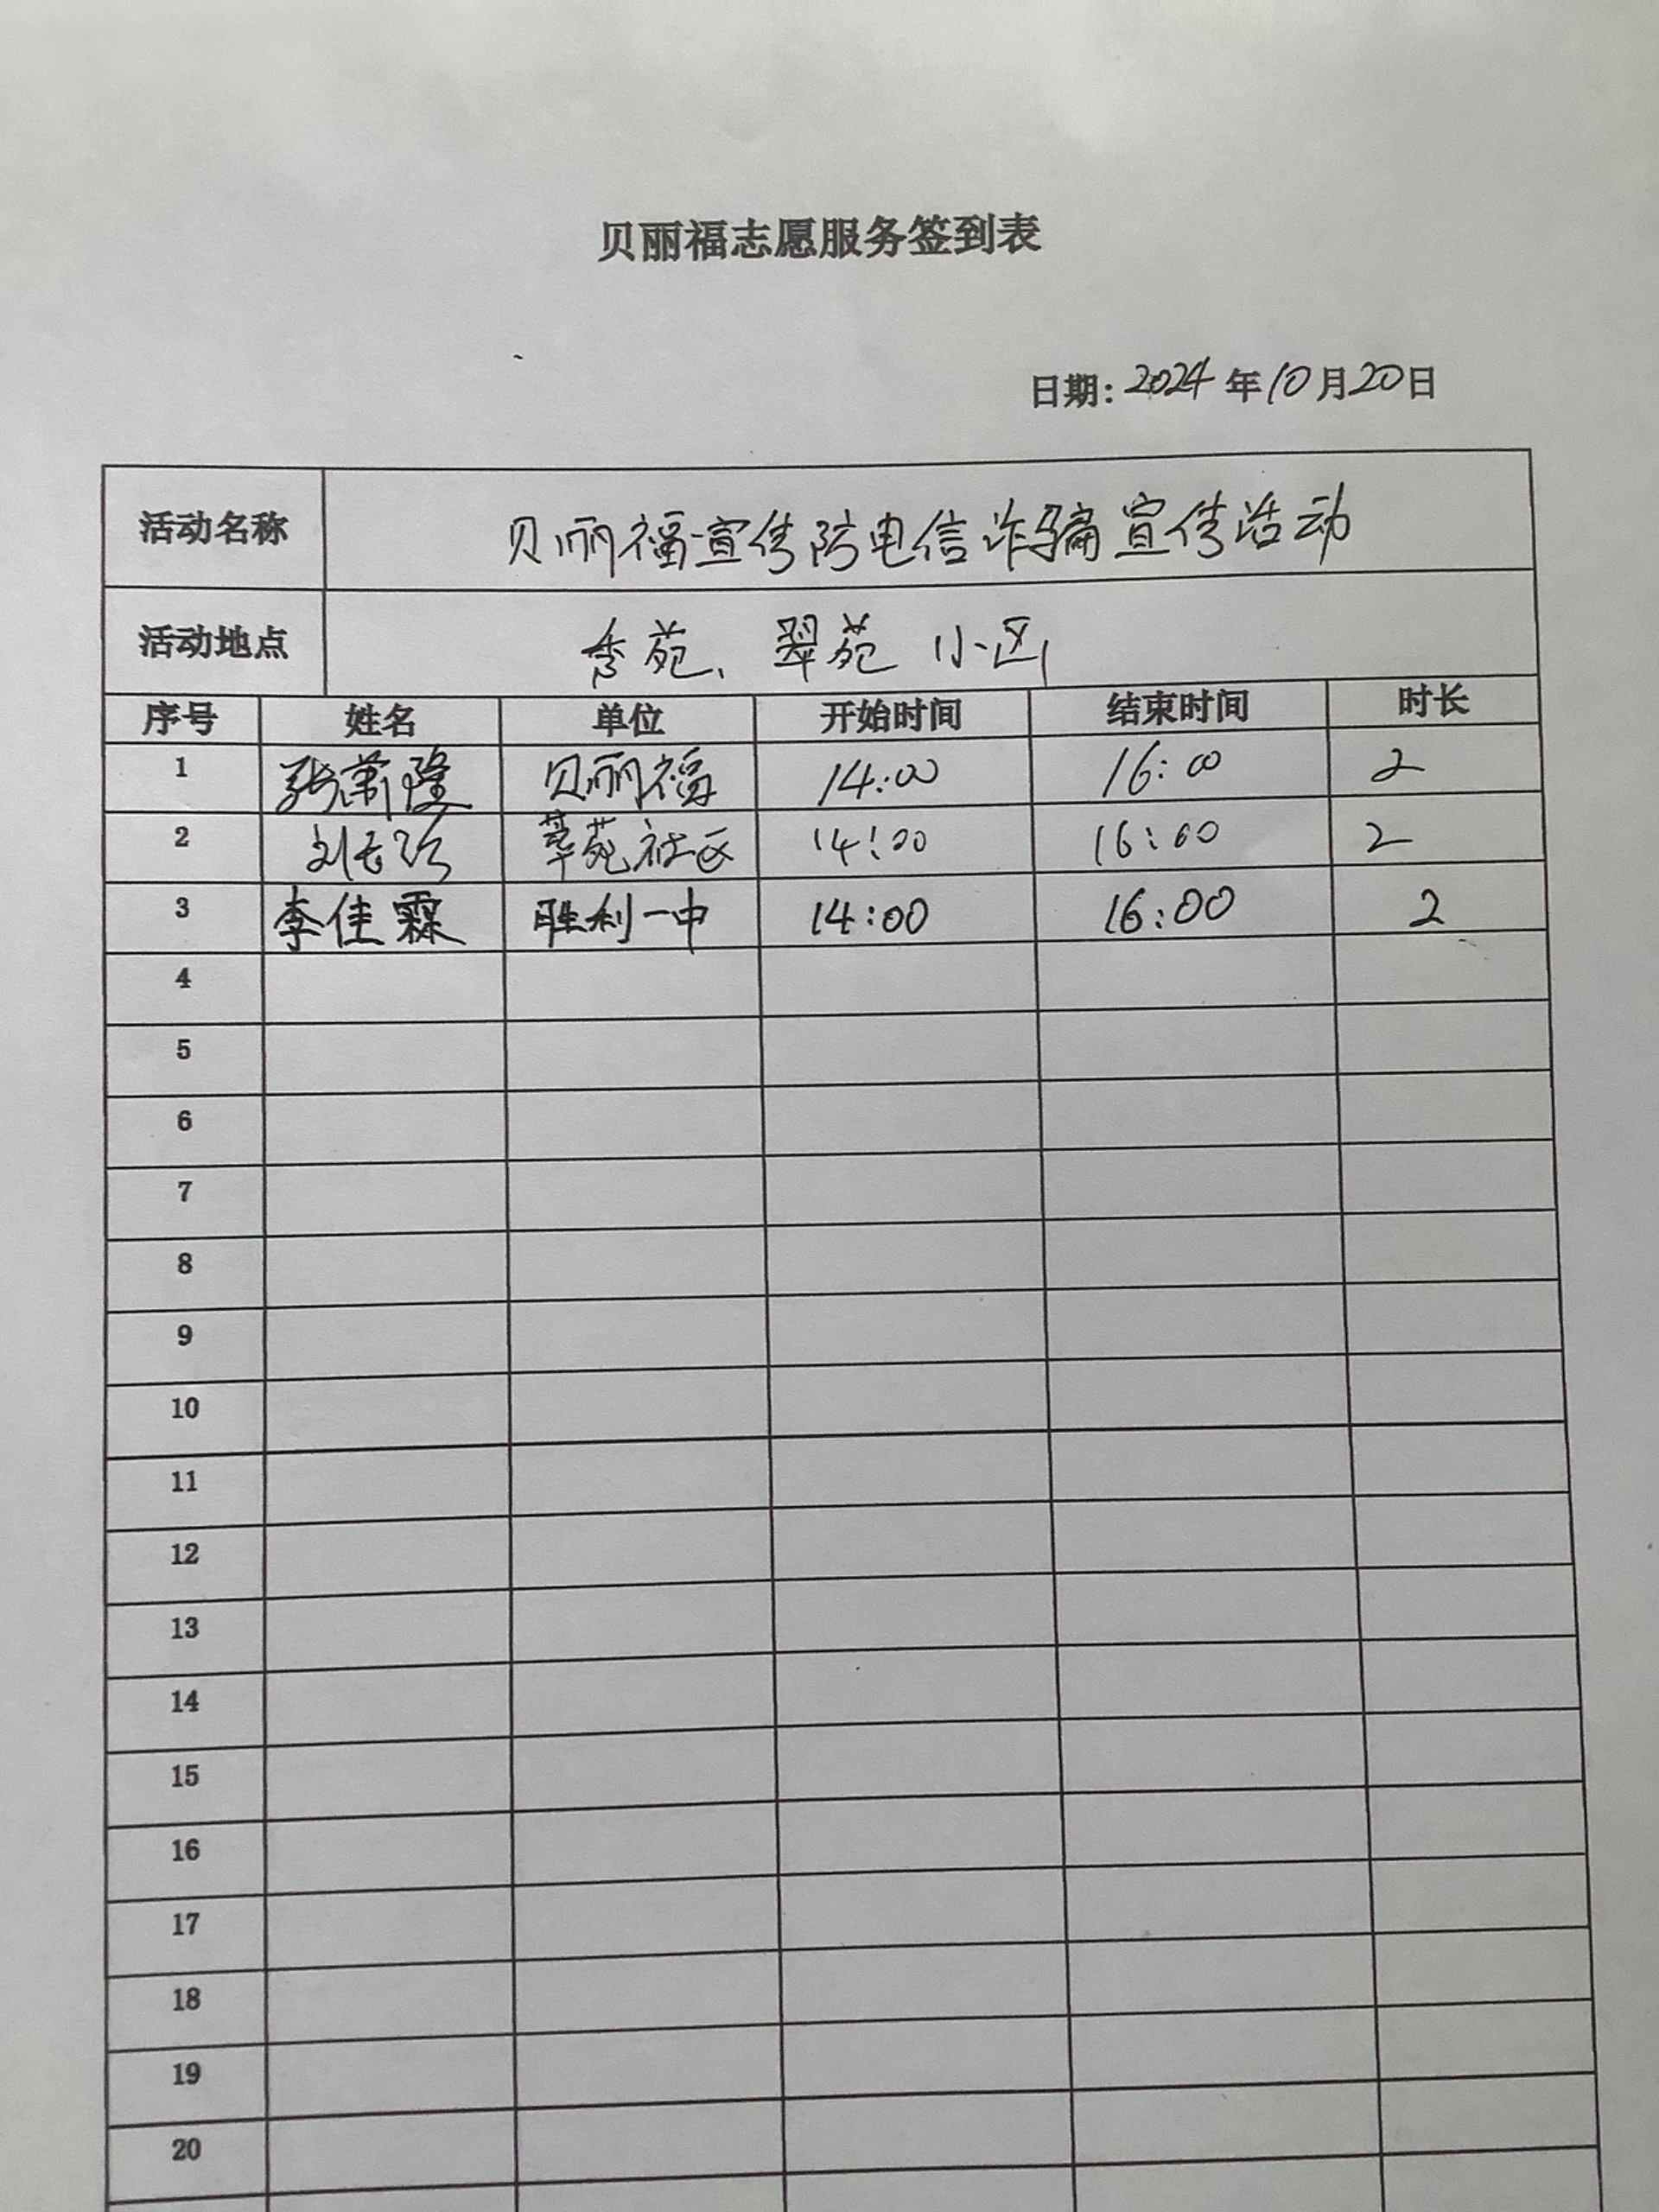 贝丽福志愿服务签到表
日期：2024年10月20日
活动名称 贝丽福宣传防电信诈骗宣传活动
活动地点 秀苑、翠苑小区
序号 姓名 单位 开始时间 结束时间 时长
1 张萧隆 贝丽福 14:00 16:00 2
2 翠苑社区 14:00 16:00 2
3 李佳霖 胜利一中 14:00 16:00 2
4
5
6
7
8
9
10
11
12
13
14
15
16
17
18
19
20